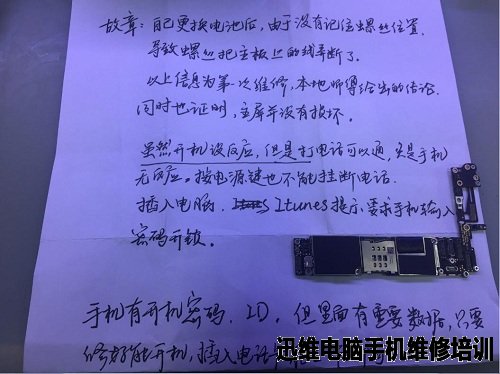 故障：自己更换电池后，由于没有记住螺丝位置，
导致螺丝把主板上的线弄断了。
以上信息为第一次维修，本地师傅给出的结论。
同时也证明，主屏并没有损坏。
虽然开机没反应，但是打电话可以通，只是手机
无反应。按电源键也不能挂断电话。
插入电脑， Itunes提示要求手机输入
密码开锁。
手机有开机密码、ID，但里面有重要数据，只要
修好能开机，插入电
迅维电脑手机维修培训